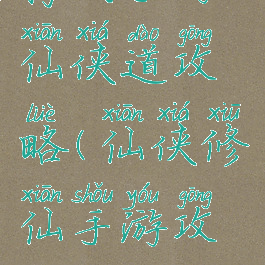 xiān xiá dào gōng
仙侠道攻
lüè xiān xiá xiū
略(仙侠修
xiān shǒu yóu gōng
仙手游攻